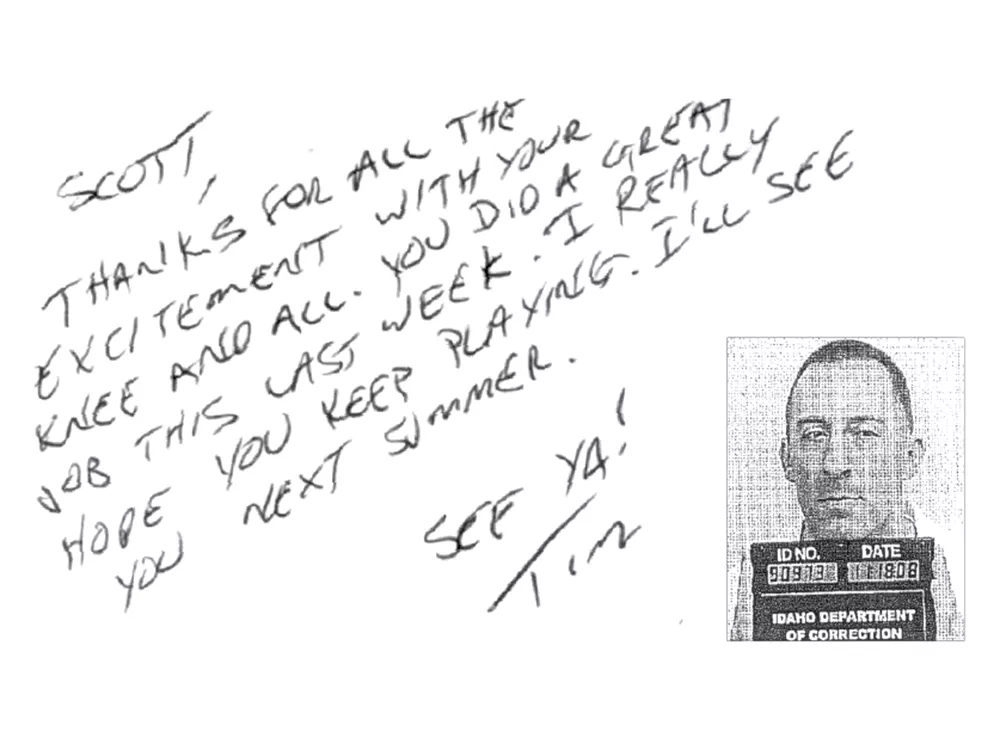 SCOTT,
THANKS FOR ALL THE
EXCITEMENT WITH YOUR
KNEE AND ALL. YOU DID A GREAT
JOB THIS LAST WEEK. I REALLY
HOPE YOU KEEP PLAYING. I'LL SEE
YOU NEXT SUMMER.
SEE YA!
TIM
ID NO. DATE
90973 11 18 08
IDAHO DEPARTMENT
OF CORRECTION